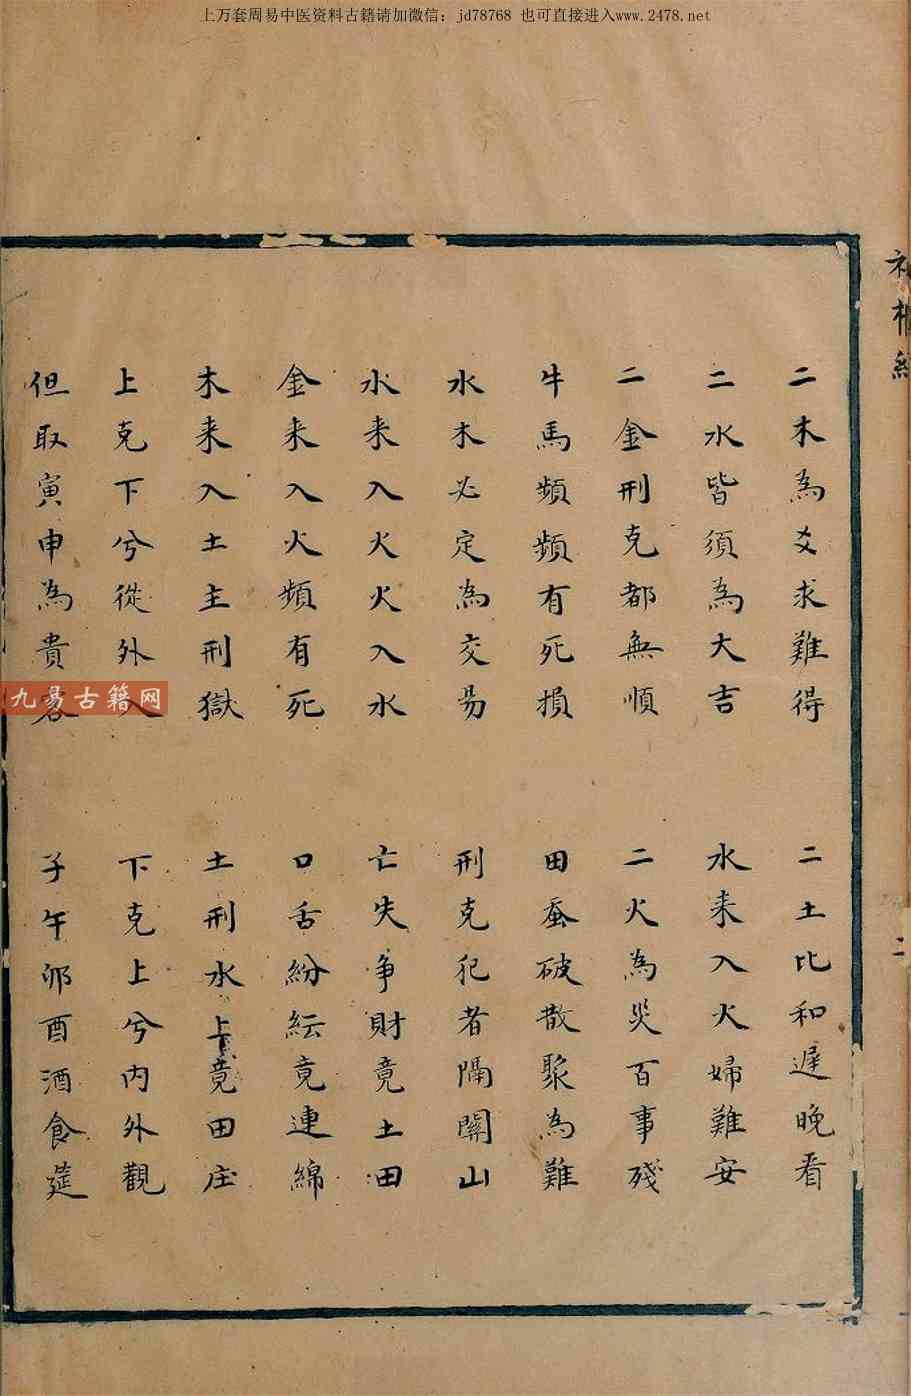 上万套周易中医资料古籍请加微信：jd78768 也可直接进入www.2478.net
二木為爻求難得 二土比和遲晚看
二水皆須為大吉 水来入火婦難安
二金刑克都無順 二火為災百事殘
牛馬頻頻有死損 田蚕破散聚為難
水木必定為交易 刑克犯者隔關山
水来入火火入水 亡失争財竟土田
金来入火頻有死 口舌紛紜竟連綿
木来入土主刑獄 土刑水上竟田庄
上克下兮從外入 下克上兮内外觀
但取寅申為貴客 子午卯酉酒食筵
九易古籍网
二